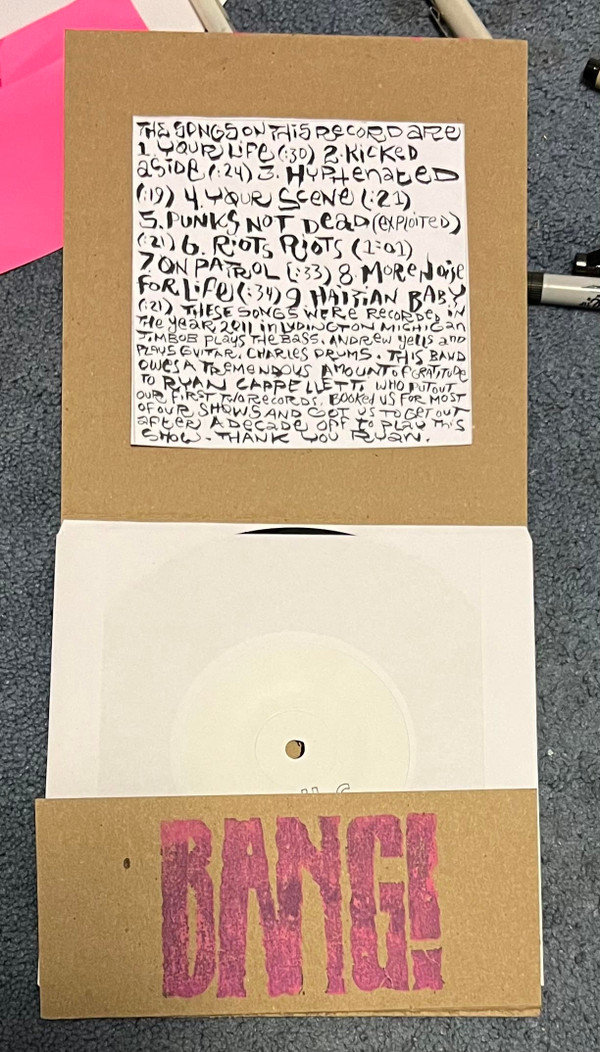 THE SONGS ON THIS RECORD ARE
1. YOUR LIFE (:30) 2. KICKED
ASIDE (:24) 3. HYPHENATED
(:19) 4. YOUR SCENE (:21)
5. PUNKS NOT DEAD (EXPLOITED)
(:21) 6. RIOTS RIOTS (1:01)
7. ON PATROL (:33) 8. MORE NOISE
FOR LIFE (:34) 9. HAITIAN BABY
(:21) THESE SONGS WERE RECORDED IN
THE YEAR 2011 IN LUDINGTON MICHIGAN
JIMBOB PLAYS THE BASS. ANDREW YELLS AND
PLAYS GUITAR. CHARLES DRUMS. THIS BAND
OWES A TREMENDOUS AMOUNT OF GRATITUDE
TO RYAN CAPPELLETTI, WHO PUT OUT
OUR FIRST TWO RECORDS. BOOKED US FOR MOST
OF OUR SHOWS AND GOT US TO GET OUT
AFTER A DECADE OFF TO PLAY THIS
SHOW. THANK YOU RYAN.
BANG!